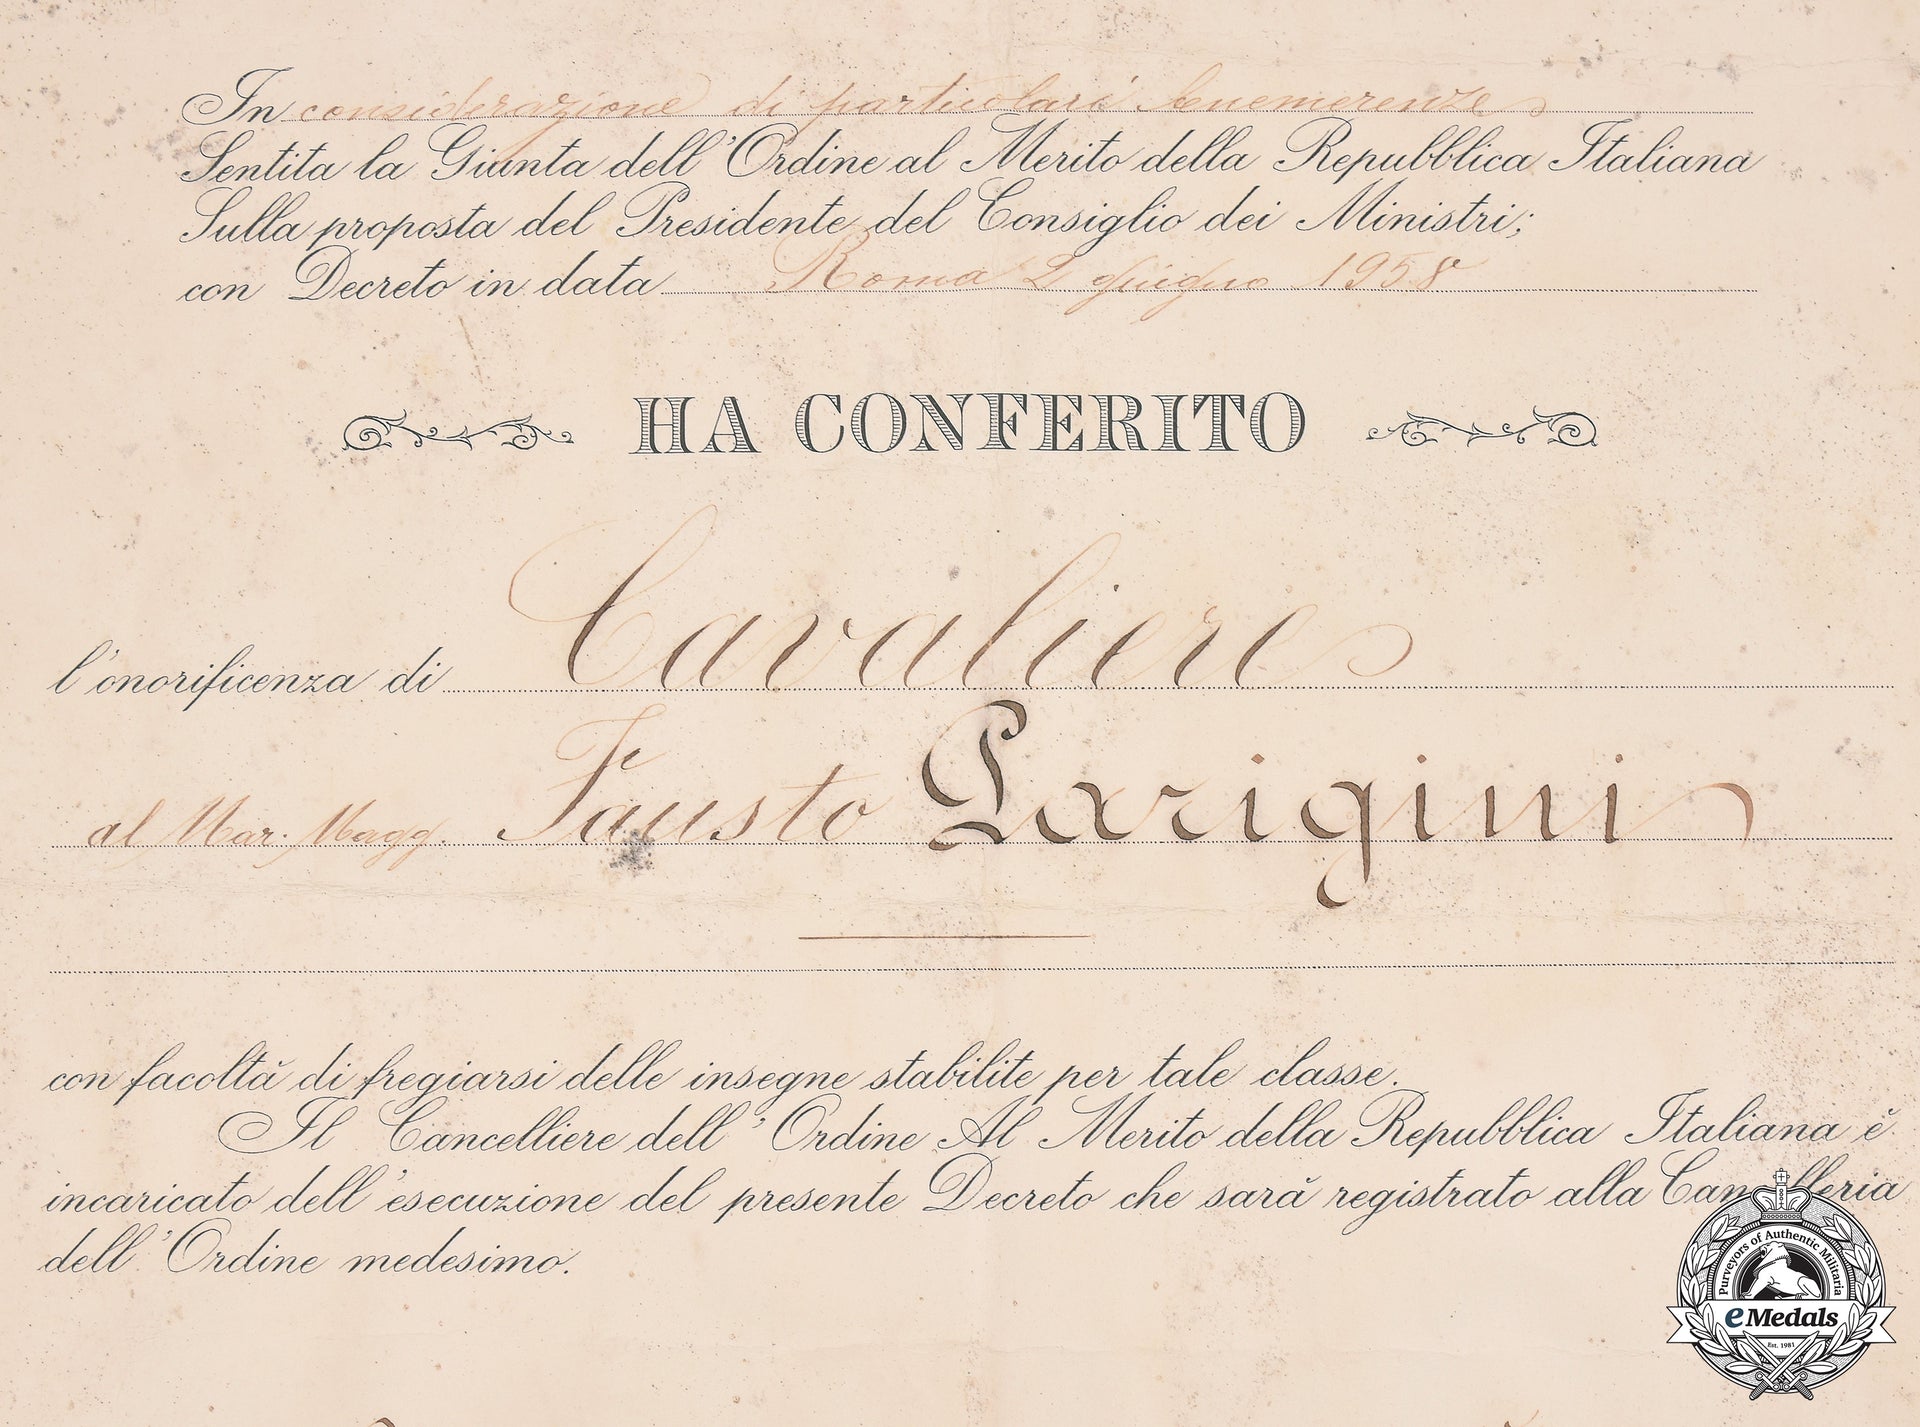 In considerazione di particolari benemerenze
Sentita la Giunta dell'Ordine al Merito della Repubblica Italiana
Sulla proposta del Presidente del Consiglio dei Ministri;
con Decreto in data Roma 2 giugno 1958
HA CONFERITO
l'onorificenza di Cavaliere
al Mar. Magg. Fausto Parigini
con facoltà di fregiarsi delle insegne stabilite per tale classe.
Il Cancelliere dell'Ordine Al Merito della Repubblica Italiana è
incaricato dell'esecuzione del presente Decreto che sarà registrato alla Cancelleria
dell'Ordine medesimo.
Purveyors of Authentic Militaria
eMedals
Est. 1981